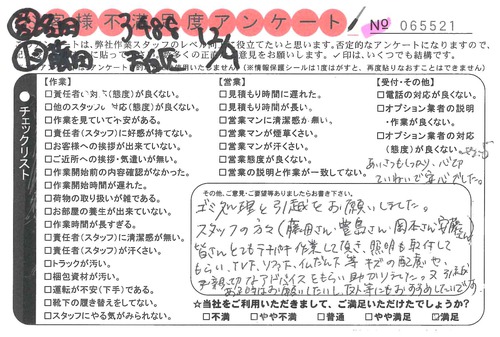 お客様不満足度アンケート
No 065521
アンケートは、弊社作業スタッフのレベル向上に役立てたいと思います。否定的なアンケートになりますので、
多くの正直なご意見をお願いします。✓印は、いくつでも結構です。
(※情報保護シールは1度はがすと、再度貼りなおすことはできません)
チェックリスト
【作業】
□責任者の対応(態度)が良くない。
□他のスタッフの対応(態度)が良くない。
□作業を見ていて不安がある。
□責任者(スタッフ)に好感が持てない。
□お客様への挨拶が出来ていない。
□ご近所への挨拶・気遣いが無い。
□作業開始前の内容確認がなかった。
□作業開始時間が遅れた。
□荷物の取り扱いが雑である。
□お部屋の養生が出来ていない。
□作業時間が長すぎる。
□責任者(スタッフ)に清潔感が無い。
□責任者(スタッフ)が汗くさい。
□トラックが汚い。
□梱包資材が汚い。
□運転が不安(下手)である。
□靴下の履き替えをしてない。
□スタッフにやる気がみられない。
【営業】
□見積もり時間に遅れた。
□見積もり時間が長い。
□営業マンに清潔感が無い。
□営業マンが煙草くさい。
□営業マンが汗くさい。
□営業態度が良くない。
□営業の説明と作業が一致してない。
【受付・その他】
□電話の対応が良くない。
□オプション業者の説明
・作業が良くない。
□オプション業者の対応
(態度)が良くない。
あいさつもしっかり、
ていねいで安心でした。
その他、ご意見・ご要望等ありましたらお書き下さい。
ゴミ処理と引越をお願いしました。
スタッフの方々(藤田さん、豊島さん、岡本さん、安藤さん)
皆さんとてもテキパキ作業して頂き、照明も取付して
もらい、TV、ソファ、イム、タンス等キズの配慮や、
親切なアドバイスをもらい助かりました。又引越
ある時はお願いしたいし、友人等にもおすすめしたいです。
☆当社をご利用いただきまして、ご満足いただけたでしょうか?
□不満 □やや不満 □普通 □やや満足 ☑満足